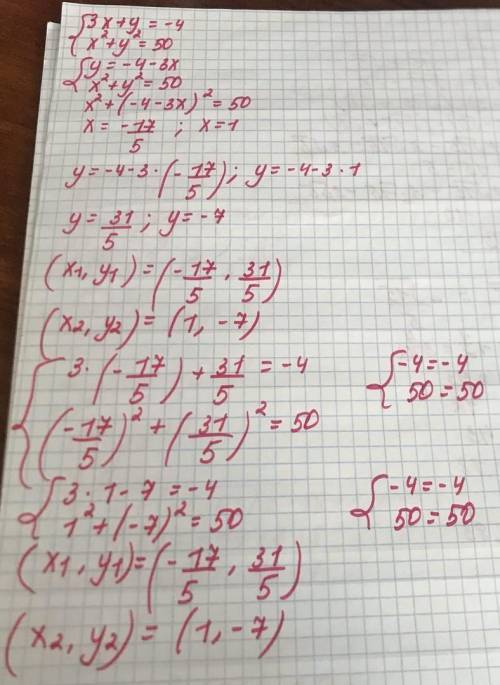 {3x+y=-4
{x²+y²=50
{y=-4-3x
{x²+y²=50
x²+(-4-3x)²=50
x=-17/5; x=1
y=-4-3·(-17/5); y=-4-3·1
y=31/5; y=-7
(x1,y1)=(-17/5,31/5)
(x2,y2)=(1,-7)
{3·(-17/5)+31/5=-4 {-4=-4
{(-17/5)²+(31/5)²=50 {50=50
{3·1-7=-4 {-4=-4
{1²+(-7)²=50 {50=50
(x1,y1)=(-17/5,31/5)
(x2,y2)=(1,-7)